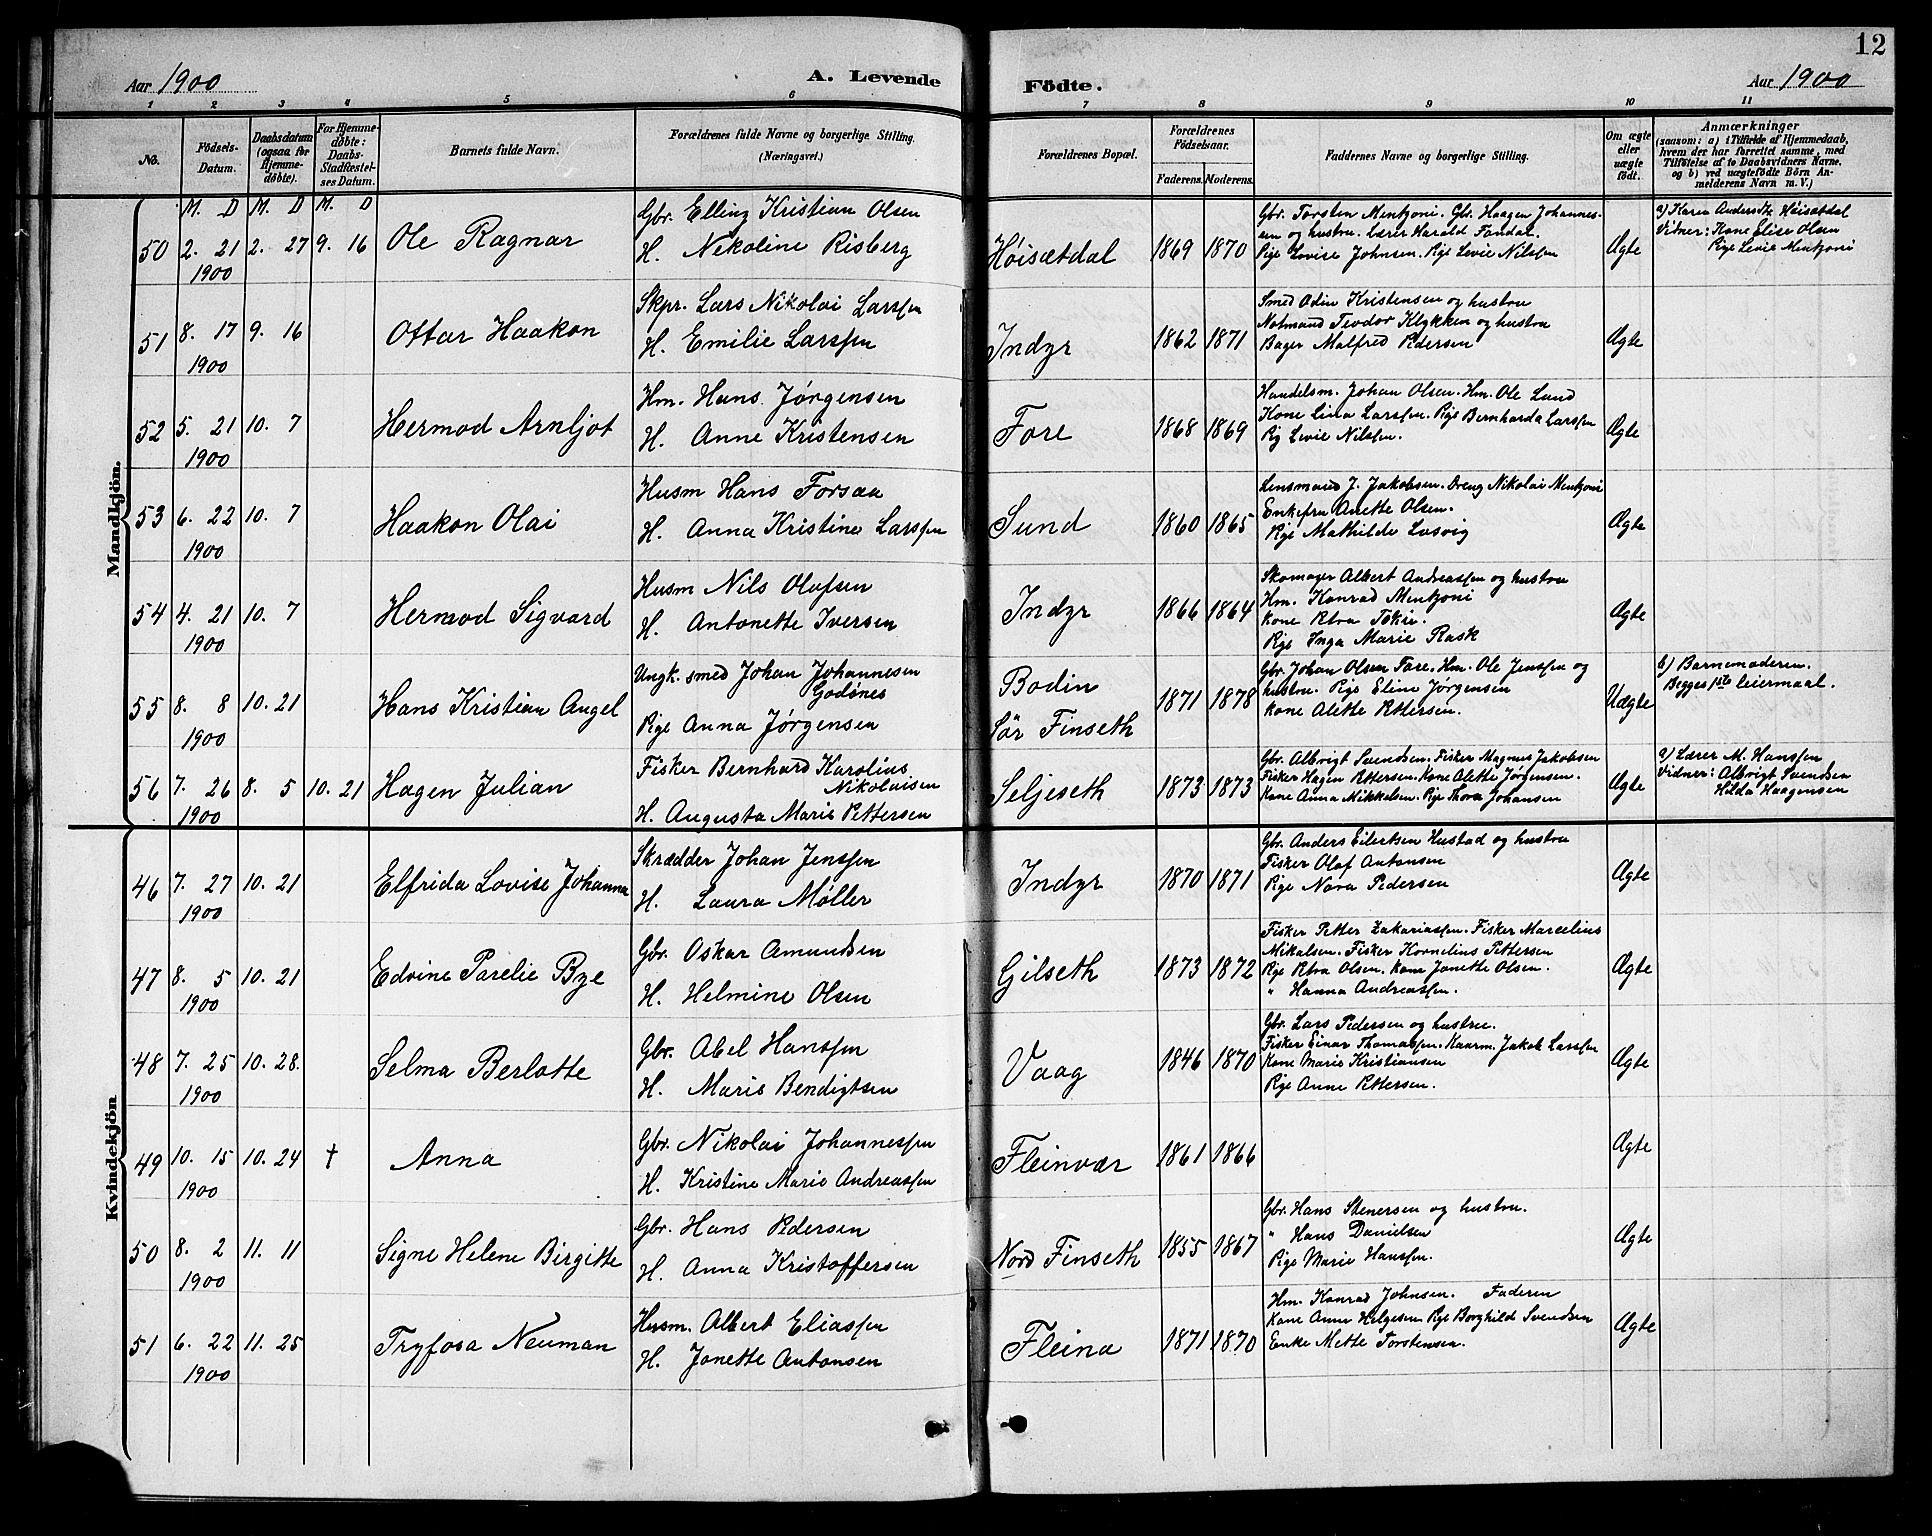 12
Aar 1900
A. Levende
Födte.
Aar 1900
1 2 3 4 5 6 7 8 9 10 11
No.
Födsels-
Datum.
Daabsdatum
(ogsaa for
Hjemme-
døbte).
For Hjemme-
døbte:
Daabs-
Stadfæstel-
ses Datum.
Barnets fulde Navn.
Forældrenes fulde Navne og borgerlige Stilling.
(Næringsvei.)
Forældrenes Bopæl.
Forældrenes
Födselsaar.
Faderens. Moderens.
Faddernes Navne og borgerlige Stilling.
Om ægte
eller
uægte
födt.
Anmærkninger
(saasom: a) i Tilfælde af Hjemmedaab,
hvem der har forrettet samme, med
Tilföielse af to Daabsvidners Navne,
og b) ved uægtefödte Börn An-
melderens Navn m. V.)
Mandkjön.
M. D M. D M. D
50 2. 21 2. 27 9. 16
1900
Ole Ragnar
Gbr. Elling Kristian Olsen
H. Nikoline Risberg
Høisætdal
1869 1870
Gbr. Torsten Mentzoni. Gbr. Haagen Johannes-
sen og hustru. Lærer Harald Fondal.
Pige Lovise Johnsen. Pige Levie Nilssen
Ægte
a) Karen Andersdtr Høisætdal
Vidner: Kone Elise Olsen
Pige Levie Mentzoni
51 8. 17 9. 16
1900
Ottar Haakon
Skpr. Lars Nikolai Larssen
H. Emilie Larssen
Indyr
1862 1871
Smed Odin Kristensen og hustru
Notmand Teodor Klykken og hustru
Bager Malfred Pedersen
Ægte
52 5. 21 10. 7
1900
Hermod Arnljot
Hm. Hans Jørgensen
H. Anne Kristensen
Fore
1868 1869
Handelsm. Johan Olsen. Hm. Ole Lund
Kone Lina Larssen. Pige Bernharda Larssen
Pig Levie Nilssen.
Ægte
53 6. 22 10. 7
1900
Haakon Olai
Husm Hans Forsaa
H. Anna Kristine Larssen
Sund
1860 1865
Lensmand J. Jakobsen. Dreng Nikolai Mentzoni
Enkefru Anette Olsen.
Pige Mathilde Losvig
Ægte
54 4. 21 10. 7
1900
Hermod Sigvard
Husm Nils Olafsen
H. Antonette Iversen
Indyr
1866 1864
Skomager Albert Andreassen og hustru
Hm. Konrad Mentzoni
Kone Petra
Pige Inga Marie Rask
Ægte
55 8. 8 10. 21
1900
Hans Kristian Angel
Ungk. smed Johan Johannesen
Godønes
Pige Anna Jørgensen
Bodin
Sør Finseth
1871 1878
Gbr. Johan Olsen Fore. Hm. Ole Jenssen og
hustru. Pige Eline Jørgensen
Kone Alette Pettersen.
Uægte
b) Barnemoderen.
Begges 1ste leiermaal.
56 7. 26 8. 5 10. 21
1900
Hagen Julian
Fisker Bernhard Karolius
Nikolaisen
H. Augusta Marie Pettersen
Seljeseth
1873 1873
Gbr. Albrigt Svendsen. Fisker Magnus Jakobsen
Fisker Hagen Pettersen. Kone Alette Jørgensen.
Kone Anna Mikkelsen. Pige Thora Johansen
Ægte
a) Lærer M. Hanssen
Vidner: Albrigt Svendsen
Hilda Haagensen
Kvindekjön
46 7. 27 10. 21
1900
Elfrida Lovise Johanna
Skrædder Johan Jenssen
H. Laura Møller
Indyr
1870 1871
Gbr. Anders Eilertsen Hustad og hustru
Fisker Olaf Antonsen
Pige Nora Pedersen
Ægte
47 8. 5 10. 21
1900
Edvine Parelie Bye
Gbr. Oskar Amundsen
H. Helmine Olsen
Gilseth
1873 1872
Fisker Petter Zakariassen. Fisker Marcelius
Mikalsen. Fisker Kornelius Pettersen
Pige Petra Olsen. Kone Janette Olsen.
" Hanna Andreassen.
Ægte
48 7. 25 10. 28.
1900
Selma Berlotte
Gbr. Abel Hanssen
H. Maris Bendigtsen
Vaag
1846 1870
Gbr. Lars Pedersen og hustru.
Fisker Einar Thomassen. Kaarm. Jakob Larssen
Kone Marie Kristiansen
Pige Anne Pettersen.
Ægte
49 10. 15 10. 24 †
1900
Anna
Gbr. Nikolai Johannessen
H. Kristine Marie Andreassen
Fleinvær
1861 1866
Ægte
50 8. 2 11. 11
1900
Signe Helene Birgitte
Gbr. Hans Pedersen
H. Anna Kristoffersen
Nord Finseth
1855 1867
Gbr. Hans Stenersen og hustru.
" Hans Danielsen
Pige Marie Hanssen.
Ægte
51 6. 22 11. 25
1900
Tryfosa Neuman
Husm. Albert Eliassen
H. Janette Antonsen
Fleina
1871 1870
Hm. Konrad Johnsen. Faderen
Kone Anne Helgesen Pige Borghild Svendsen
Enke Mette Torstensen.
Ægte